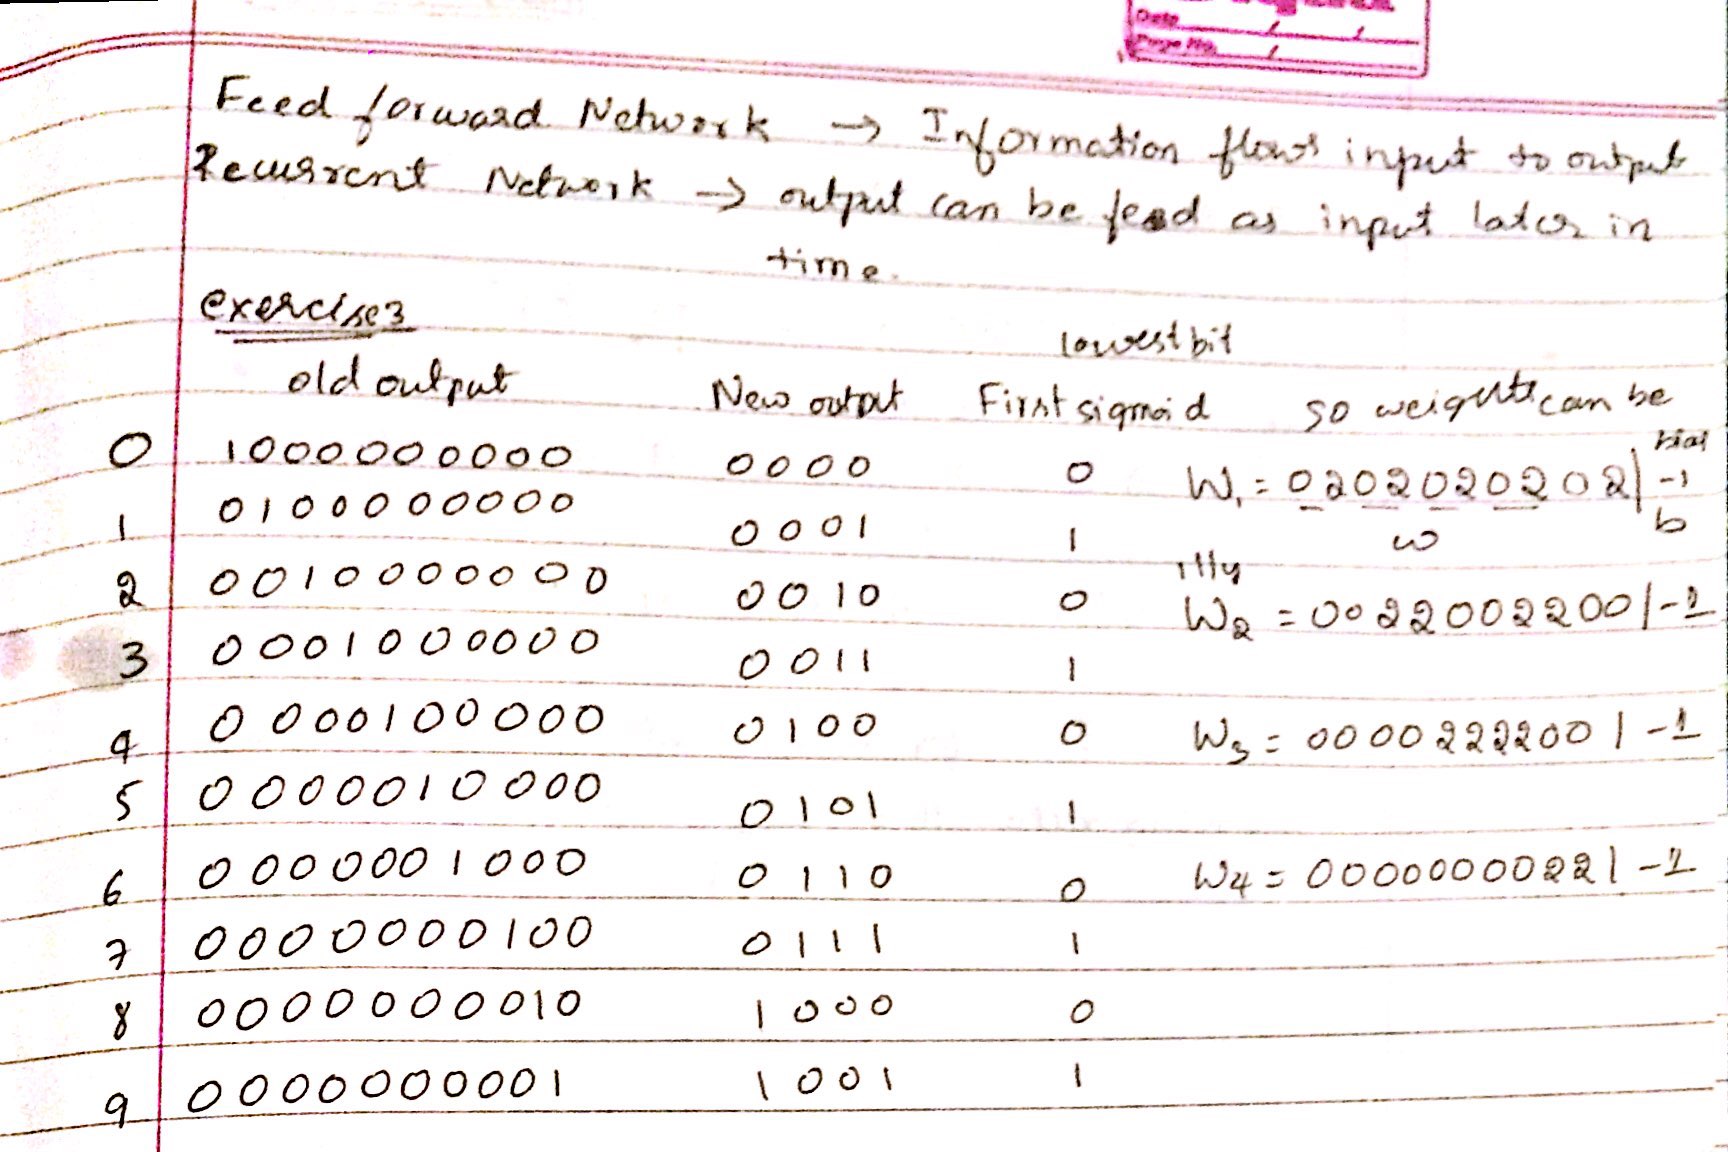 Date
Page No.
Feed forward Network → Information flows input to output
Recurrent Network → output can be feed as input later in
time.
exercise3
lowest bit
old output New output First sigmoid so weights can be
bias
0 1000000000 0000 0 W1 = 0202020202 | -1
w b
1 0100000000 0001 1
illy
2 0010000000 0010 0 W2 = 0022002200 | -1
3 0001000000 0011 1
4 0000100000 0100 0 W3 = 0000222200 | -1
5 0000010000 0101 1
6 0000001000 0110 0 W4 = 0000000022 | -1
7 0000000100 0111 1
8 0000000010 1000 0
9 0000000001 1001 1